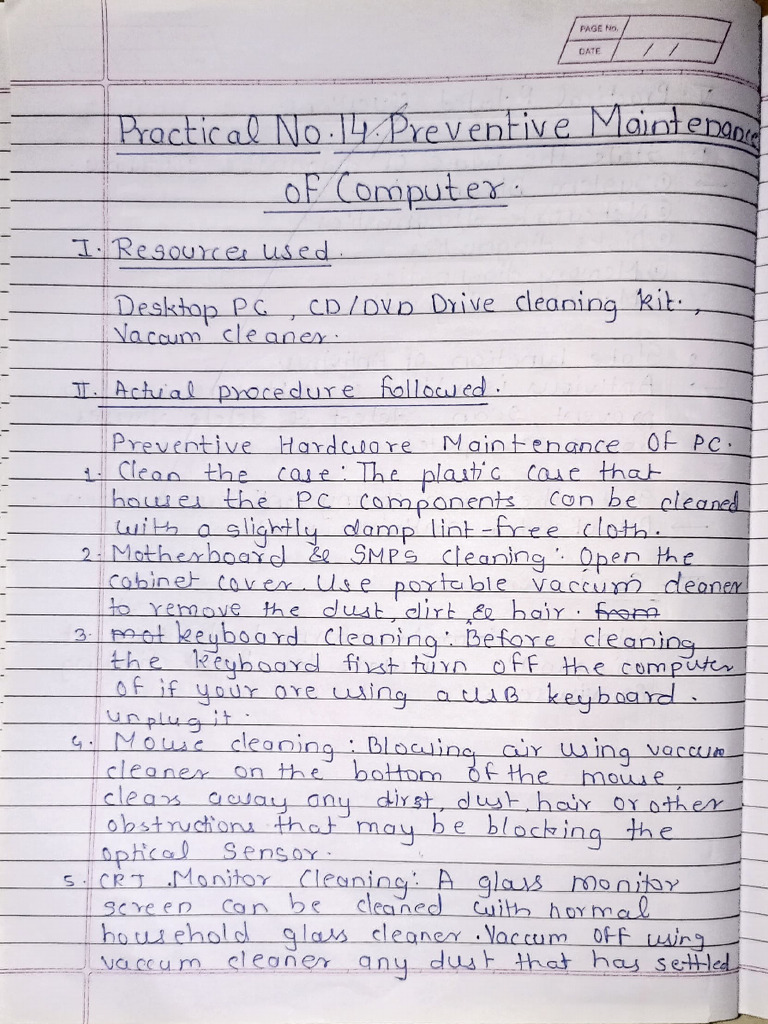 PAGE No.
DATE / /
Practical No. 14. Preventive Maintenance
of Computer.
I. Resources used.
Desktop PC, CD/DVD Drive cleaning kit.,
Vaccum cleaner.
II. Actual procedure followed.
Preventive Hardware Maintenance Of PC.
1. Clean the case: The plastic case that
houses the PC components can be cleaned
with a slightly damp lint-free cloth.
2. Motherboard & SMPS cleaning: Open the
cabinet cover. Use portable vaccum cleaner
to remove the dust, dirt, & hair. from
3. mot keyboard Cleaning: Before cleaning
the keyboard first turn off the computer
of if your are using a USB keyboard.
unplug it.
4. Mouse cleaning: Blowing air using vaccum
cleaner on the bottom of the mouse,
clears away any dirst, dust, hair or other
obstructions that may be blocking the
optical sensor.
5. CRT .Monitor Cleaning: A glass monitor
screen can be cleaned with normal
household glass cleaner. Vaccum off using
vaccum cleaner any dust that has settled